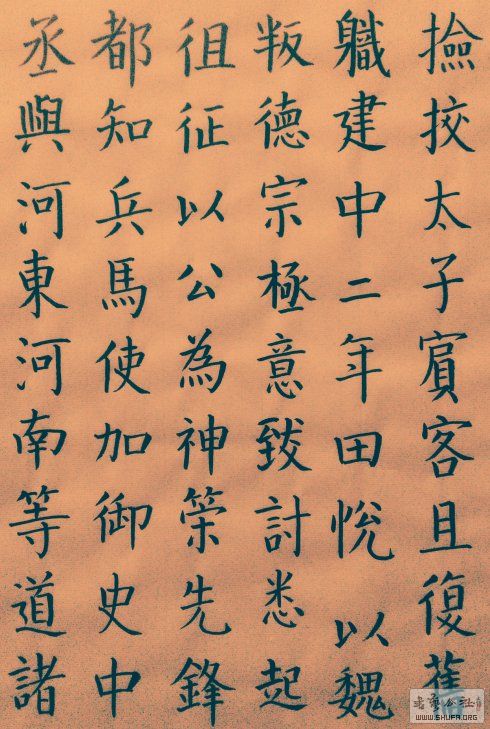 撿挍太子賔客且復舊
軄建中二年田悅以魏
叛德宗極意致討悉起
徂征以公為神策先鋒
都知兵馬使加御史中
丞與河東河南等道諸
WWW.SHUFA.ORG